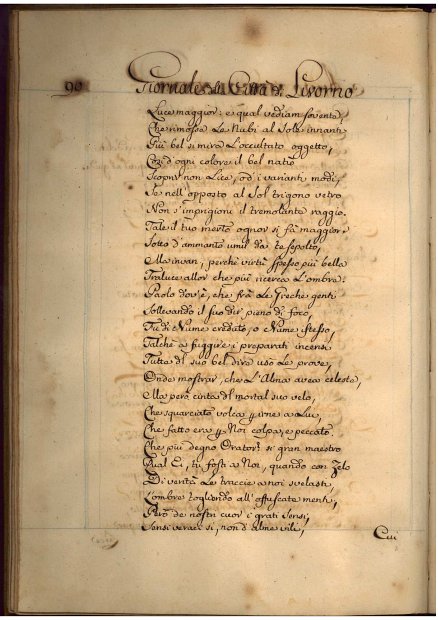 90 Giornale della Città di Livorno
Luce maggior: e qual vediam sovente,
Che rimosse Le Nubi al Sole innanti
Più bel si mira L'occultato oggetto,
Così d'ogni colore il bel natio
Scoprir non Lice, od i varianti modi,
Se nell'opposto al Sol trigono vetro
Non s'imprigioni il tremolante raggio.
Tale il tuo merto ognor si fà maggiore
Sotto d'ammanto umil da te sepolto,
Ma invan, perchè virtù spesso più bella
Traluce allor che più ricerca L'ombre:
Paolo dov'è, che frà Le Greche genti
Sollevando il suo dir pieno di foco,
Fù di Nume creduto, o Nume istesso,
Talchè a fuggire i preparati incensi
Tutta del suo bel dire usò Le prove,
Onde mostrar, che L'Alma avea celeste,
Ma però cinta del mortal suo velo,
Che squarciato volea per irne a Lui,
Che fatto era per Noi colpa, e peccato.
Che più degno Orator? si gran maestro
Qual Ei, tu fosti a Noi, quando con Zelo
Di verità Le traccie a noi svelasti,
L'ombre togliendo all'offuscate menti,
Però de nostri cuor i grati sensi,
Sensi veraci si, non d'alme vili,
Cui